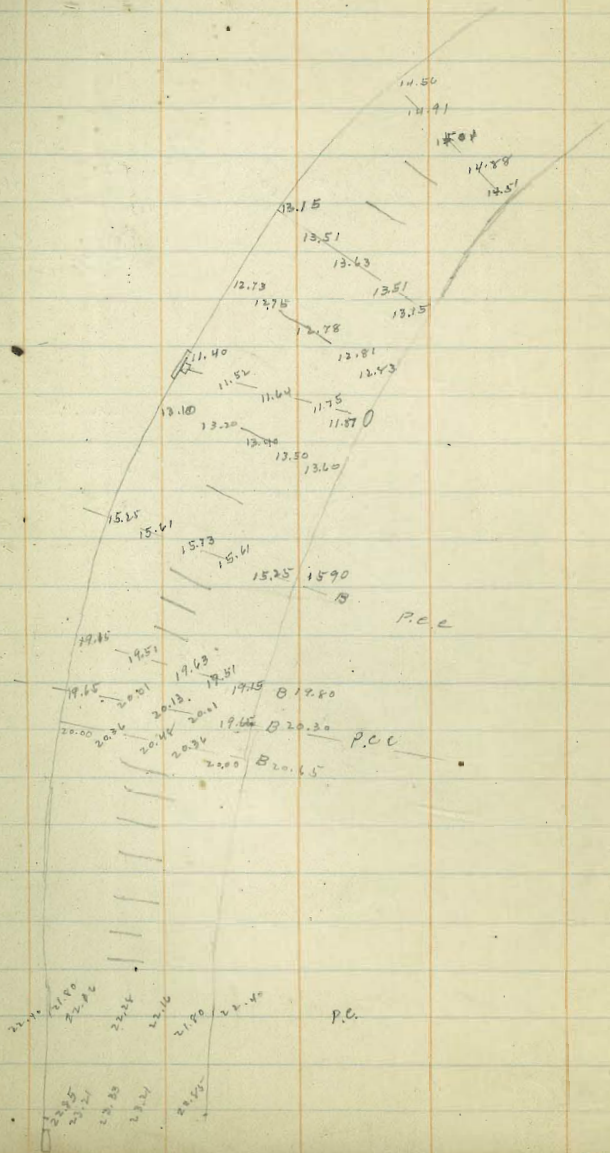 14.56
14.91
14.88
14.51
13.15
13.51
13.63
13.51
13.15
12.73
12.75
12.78
12.81
12.83
11.40
11.52
11.64
11.75
11.87
13.10
13.20
13.40
13.50
13.60
15.25
15.61
15.73
15.61
15.25 1590
B
P.C.C
19.15
19.51
19.63
19.51
19.15 B 19.80
19.65
20.01
20.13
20.01
19.65 B 20.30
P.C.C
20.00
20.36
20.48
20.36
20.00 B 20.65
22.40
21.80
22.16
22.28
22.16
21.80
22.40
P.C.
22.85
23.21
23.33
23.21
22.85